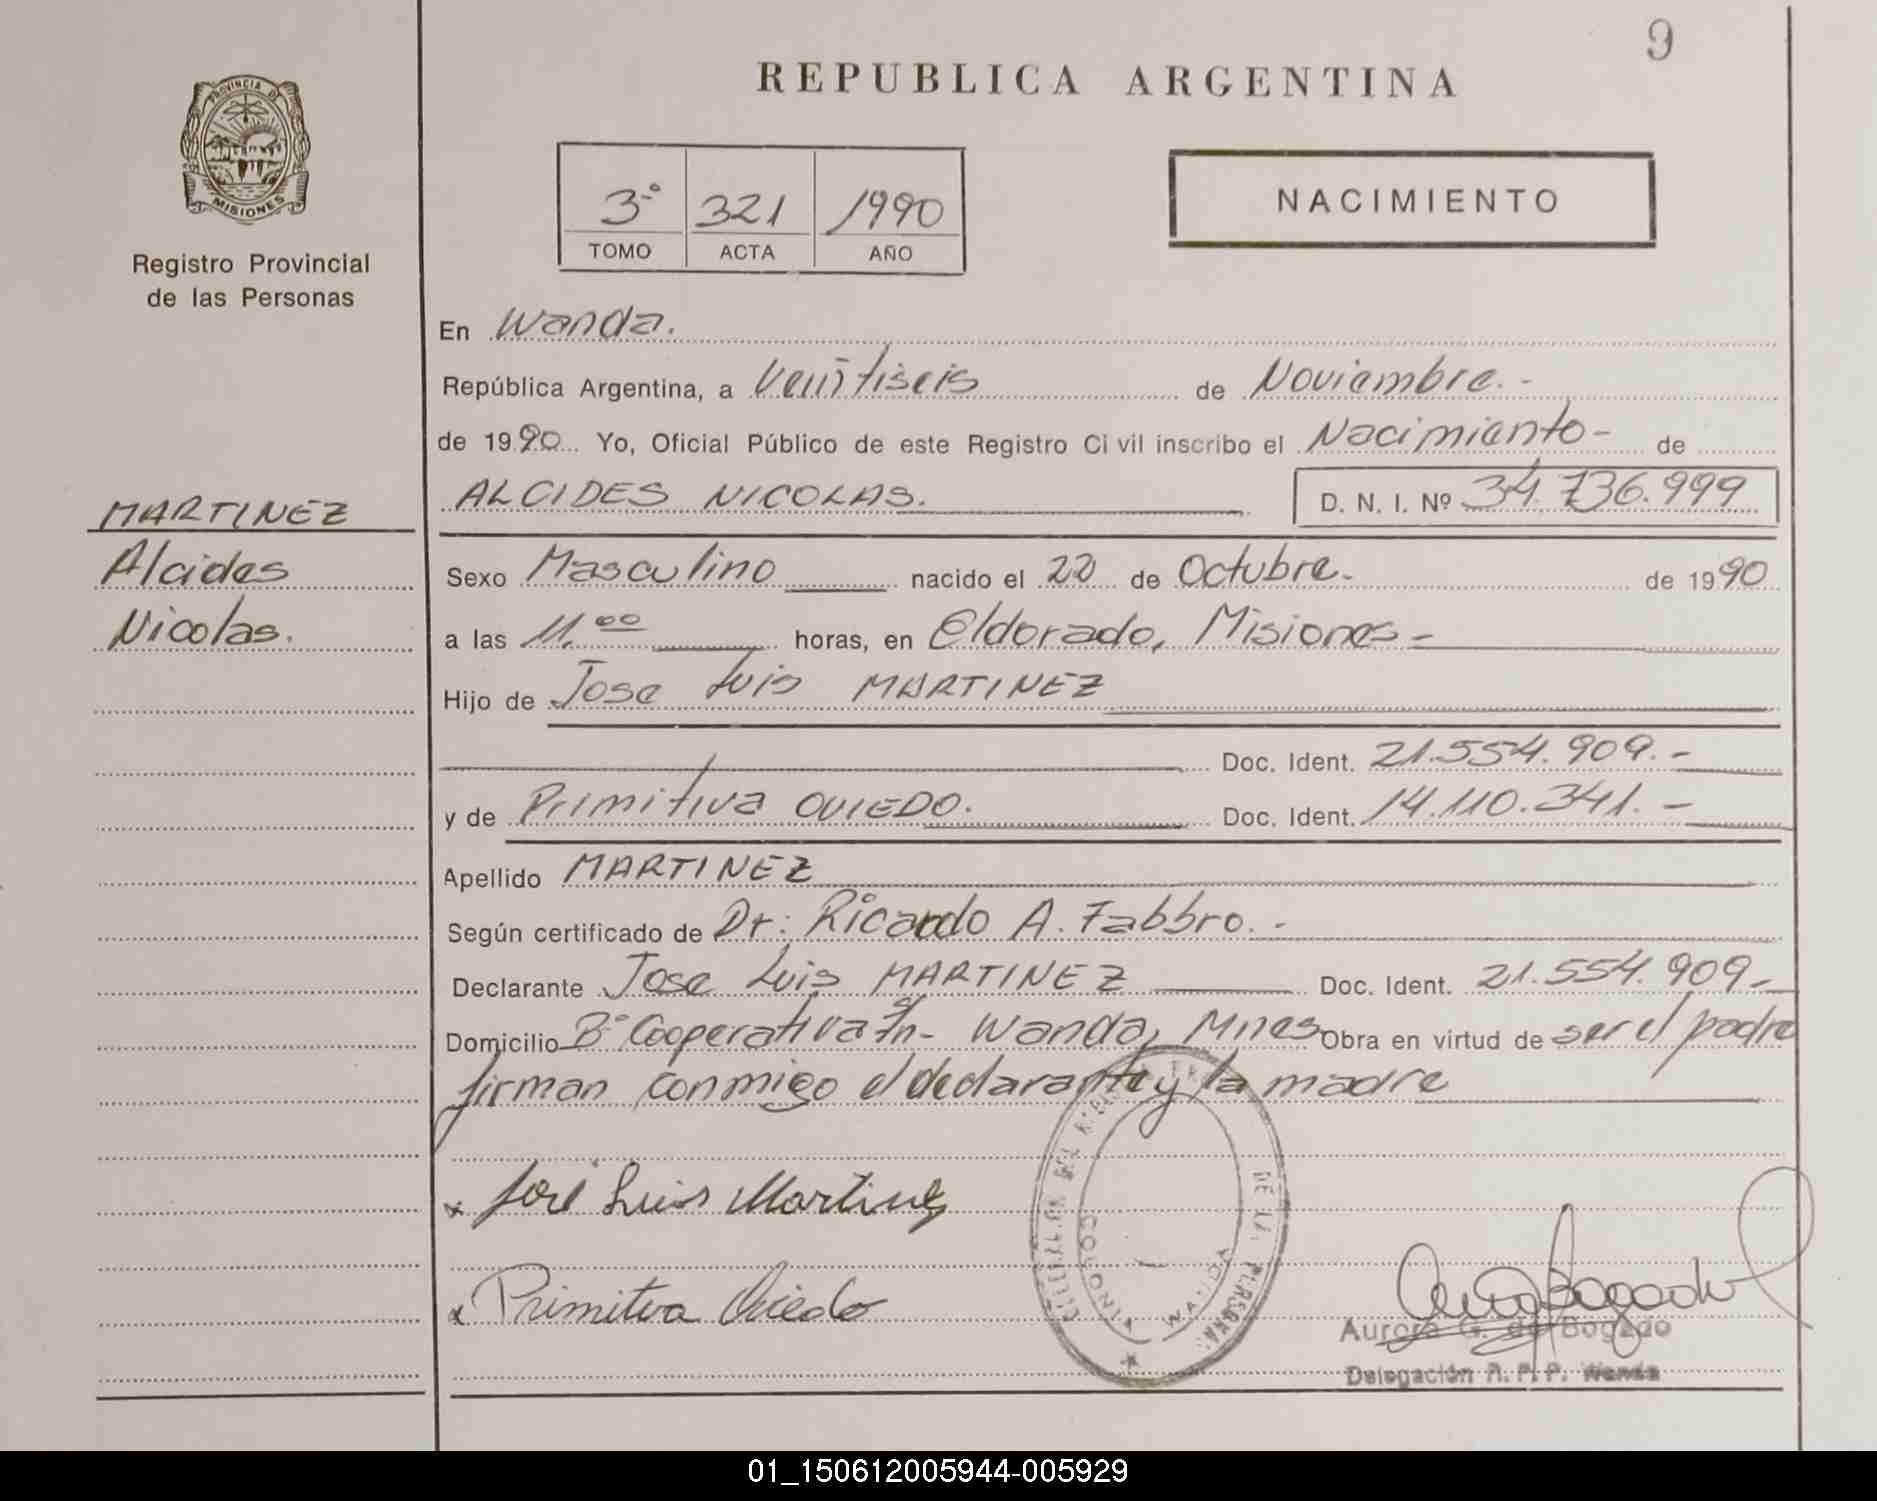 9
REPUBLICA ARGENTINA
PROVINCIA DE
MISIONES
Registro Provincial
de las Personas
3º 321 1990
TOMO ACTA AÑO
NACIMIENTO
En Wanda.
República Argentina, a Veintiseis de Noviembre.-
de 1990 Yo, Oficial Público de este Registro Civil inscribo el Nacimiento- de
MARTINEZ
Alcides
Nicolas.
ALCIDES NICOLAS. D. N. I. Nº 34.736.999
Sexo Masculino nacido el 22 de Octubre. de 1990
a las 11.00 horas, en Eldorado, Misiones-
Hijo de Jose Luis MARTINEZ
Doc. Ident. 21.554.909.-
y de Primitiva OVIEDO. Doc. Ident. 14.110.341.-
Apellido MARTINEZ
Según certificado de Dr: Ricardo A. Fabbro.-
Declarante Jose Luis MARTINEZ Doc. Ident. 21.554.909-
Domicilio Bº Cooperativa s/n- Wanda, Mnes Obra en virtud de ser el padre
firman conmigo el declarante y la madre
x José Luis Martinez
x Primitva Oviedo
DE LA PERSONA
WANDA
Aurora G. de Bogado
Delegación R. P. P. Wanda
01_150612005944-005929